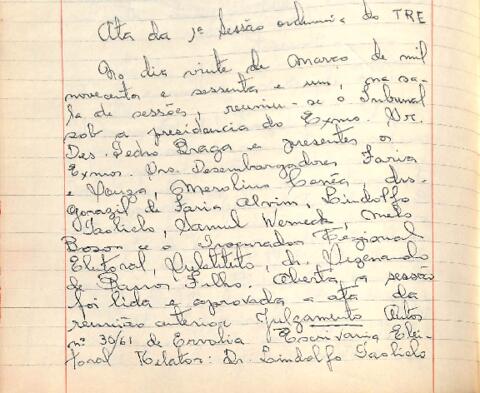 Ata da 1ª Sessão ordinaria do TRE
No dia vinte de março de mil
novecentos e sessenta e um, na sa-
la de sessões, reuniu-se o Tribunal
sob a presidencia do Exmo. Sr.
Des. Pedro Braga e presentes os
Exmos. Srs. Desembargadores Faria
e Souza, Merolino Corrêa, drs.
Gorazil de Faria Alvim, Lindolfo
Paoliello, Samuel Werneck, Melo
Boson e o Procurador Regional
Eleitoral, Substituto, dr.
de Barros Filho. Aberta a sessão
foi lida e aprovada a ata da
reunião anterior. Julgamento Autos
nº 30/61 de Ervalia Escrivania Elei-
toral Relator: Dr. Lindolfo Paoliello